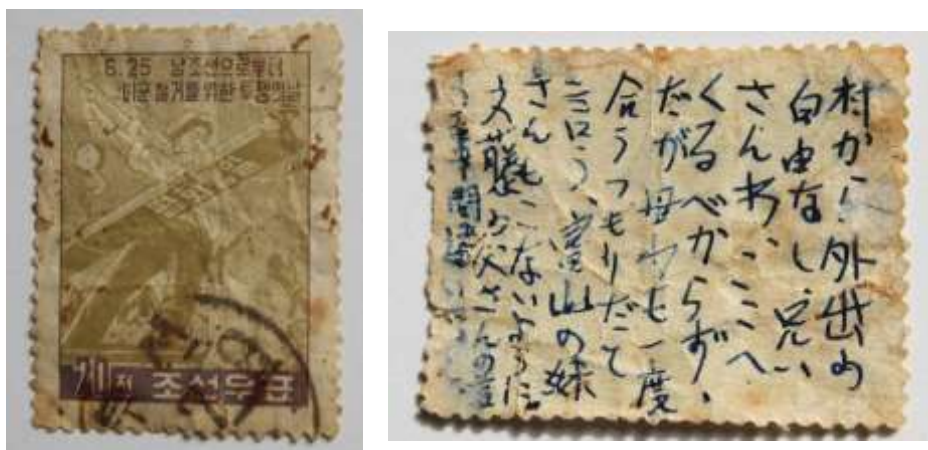 6.25 남조선으로부터
미군 철거를 위한 투쟁의 날
10 전 조선우표
村から外出の
自由なし、兄い
さんわ、ここへ
くるべからず、
だが母わも一度
合うつもりだと
言う、富山の妹
さんもこないように
お父さんの